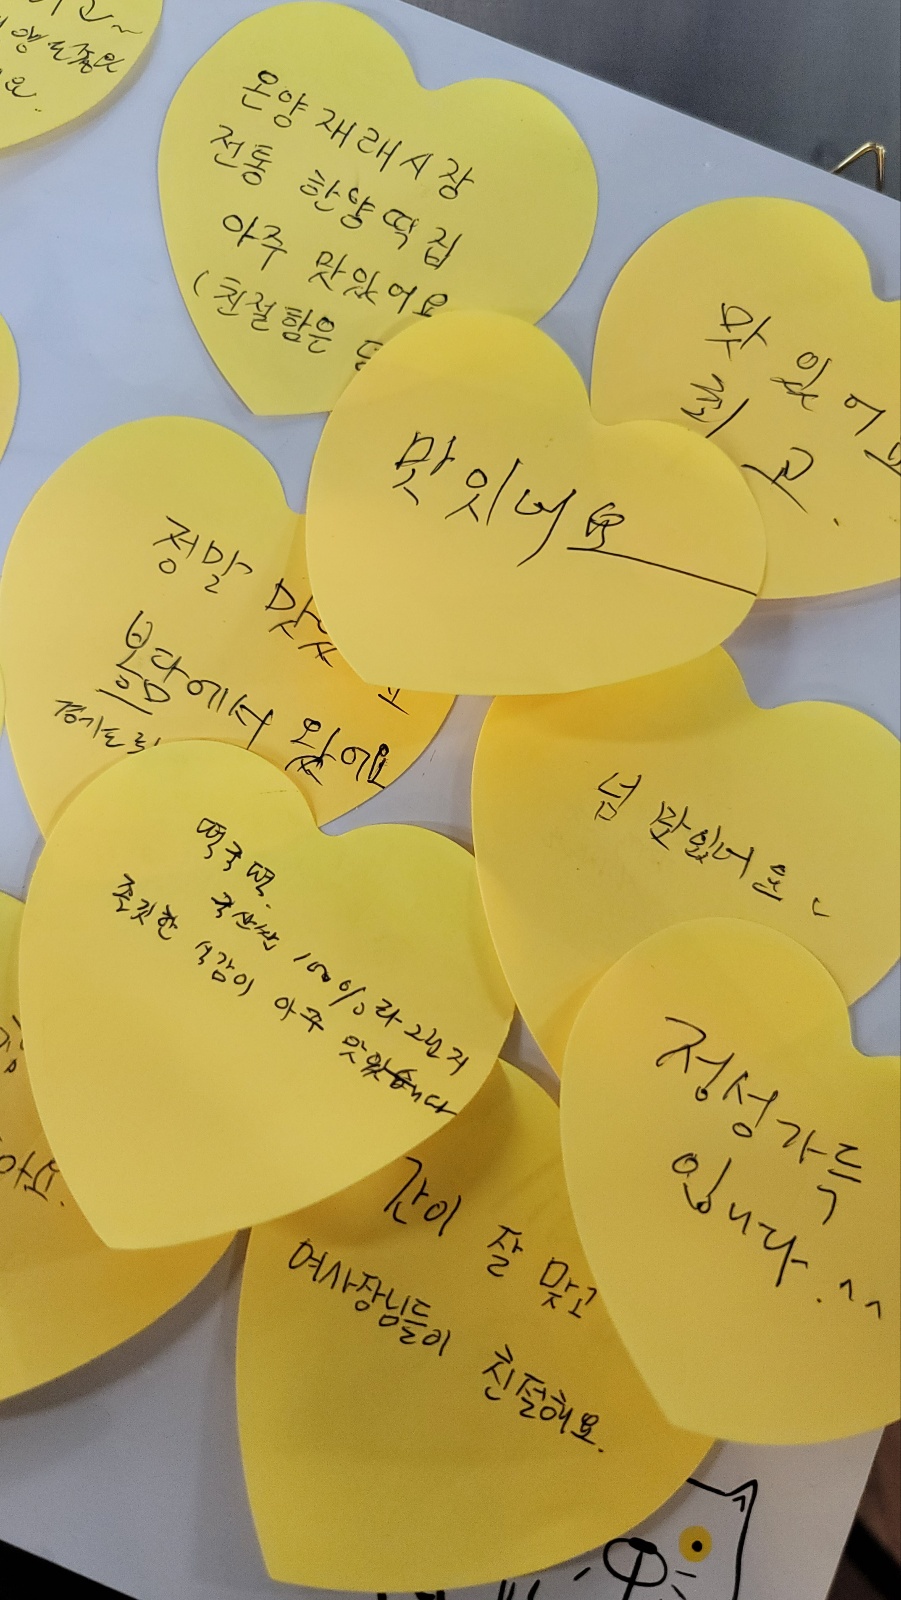 온양재래시장
전통 한양떡집
아주 맛있어요
(친절함은
맛있어요
최고.
맛있어요
정말
봉담에서 왔어요
경기도
넘 맛있어요
떡국떡.
국산쌀 100%라 그런지
쫀깃한 식감이 아주
맛있습니다
정성가득
입니다.^^
간이 잘 맞고
여사장님들이 친절해요.